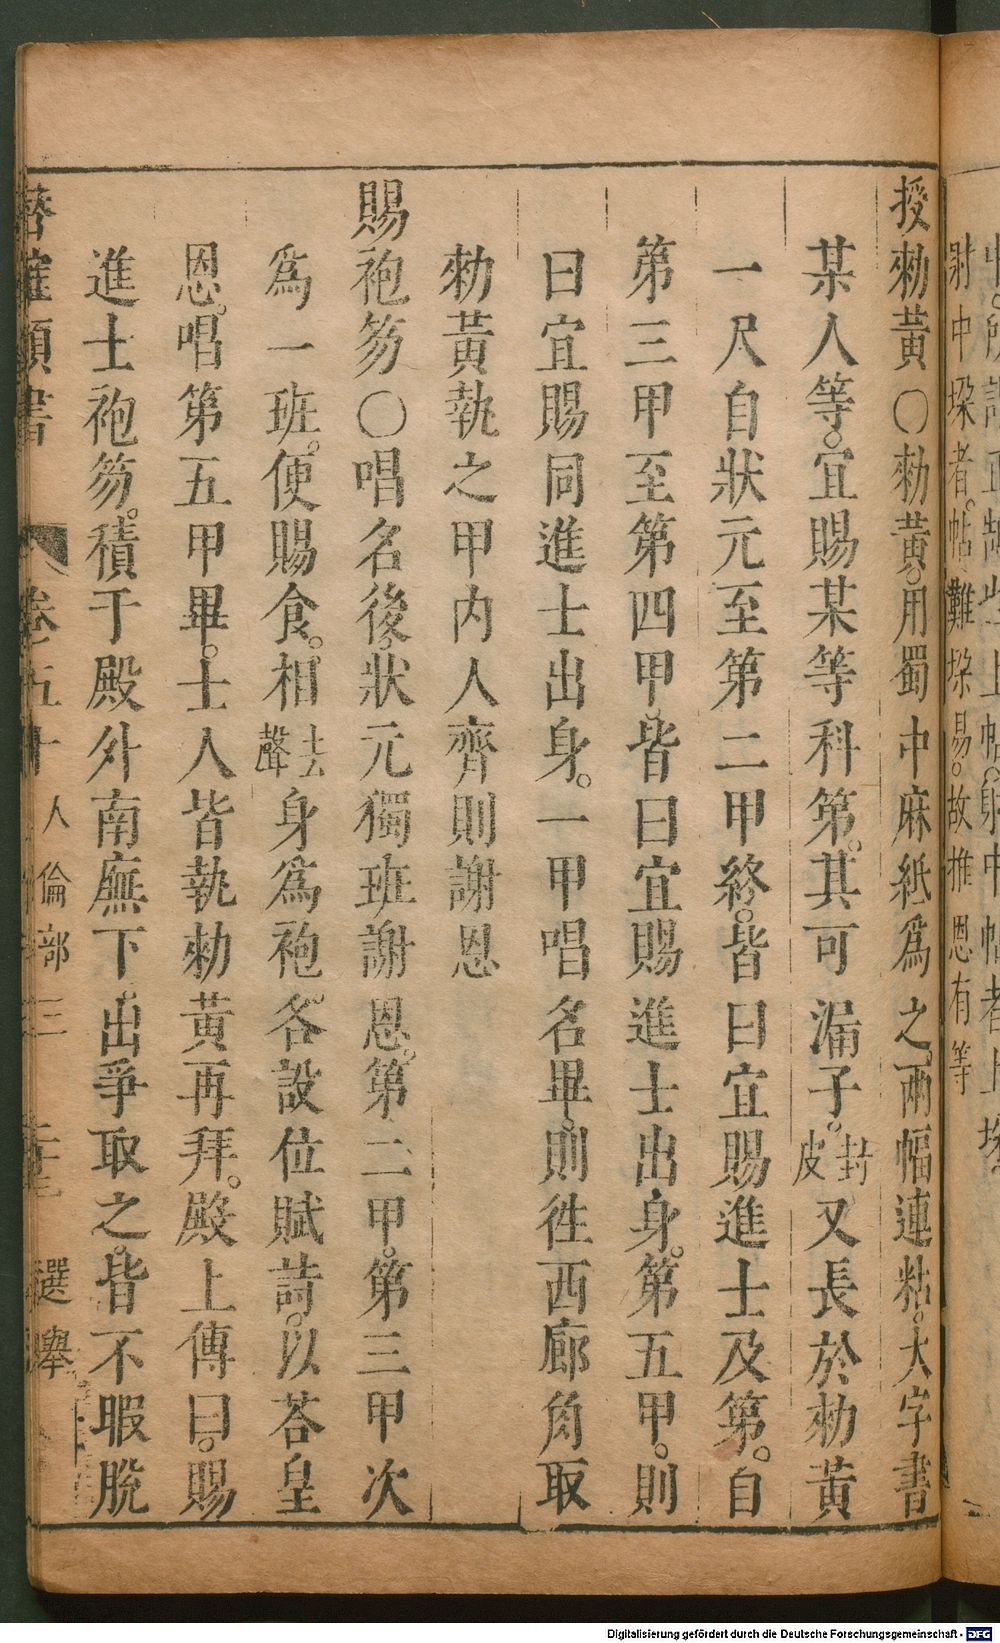 授勑黃○勑黃。用蜀中麻紙爲之。兩幅連粘。大字書
某人等。宜賜某等科第。其可漏子。封皮又長於勑黃
一尺自狀元至第二甲終。皆曰宜賜進士及第。自
第三甲至第四甲。皆曰宜賜進士出身。第五甲。則
曰宜賜同進士出身。一甲唱名畢。則徃西廊角取
勑黃執之甲内人齊則謝恩
賜袍笏○唱名後。狀元獨班謝恩。第二甲。第三甲次
爲一班。便賜食。相去聲身爲袍。各設位賦詩。以荅皇
恩。唱第五甲畢。士人皆執勑黃再拜。殿上傳曰。賜
進士袍笏。積于殿外南廡下。出爭取之。皆不暇脫
卷五十 人倫部三 選舉
射中垜者。帖難垜易。故推恩有等
Digitalisierung gefördert durch die Deutsche Forschungsgemeinschaft - DFG